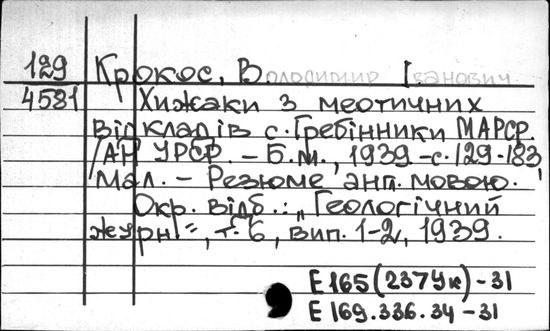 129 Крокос, Володимир Іванович.
4581 Хижаки з меотичних
відкладів с. Гребінники МАРСР.
/АН УРСР. – Б.м., 1939. – с. 129-183,
мал. – Резюме англ. мовою.
Окр. відб.: „Геологічний
журн.", т. 6, вип. 1-2, 1939.
Е 165 (237Ук) - 31
Е 169.336.34 - 31